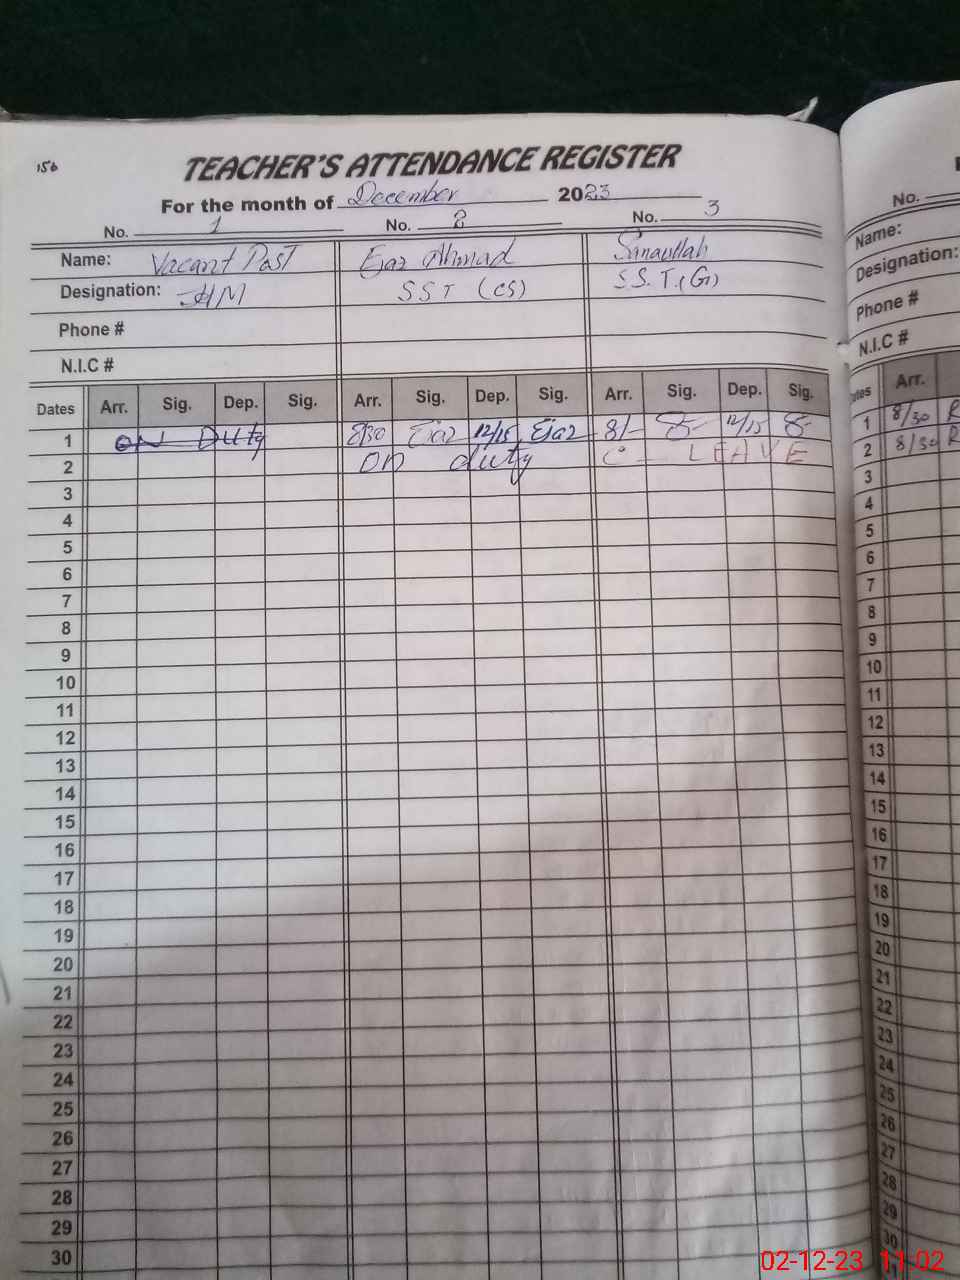 156
TEACHER'S ATTENDANCE REGISTER
For the month of December 2023
No. 1 No. 2 No. 3
Name: Vacant Post Ejaz Ahmad Sanaullah
Designation: HM SST (CS) S.S.T.(G)
Phone #
N.I.C #
Dates Arr. Sig. Dep. Sig. Arr. Sig. Dep. Sig. Arr. Sig. Dep. Sig.
1 ON DUty 8/30 Ejaz 12/15 Ejaz 8/- 12/15
2 On duty C- LEAVE
3
4
5
6
7
8
9
10
11
12
13
14
15
16
17
18
19
20
21
22
23
24
25
26
27
28
29
30
No.
Name:
Designation:
Phone #
N.I.C #
Arr.
1 8/30 R
2 8/30 R
3
4
5
6
7
8
9
10
11
12
13
14
15
16
17
18
19
20
21
22
23
24
25
26
27
28
29
30
02-12-23 11:02